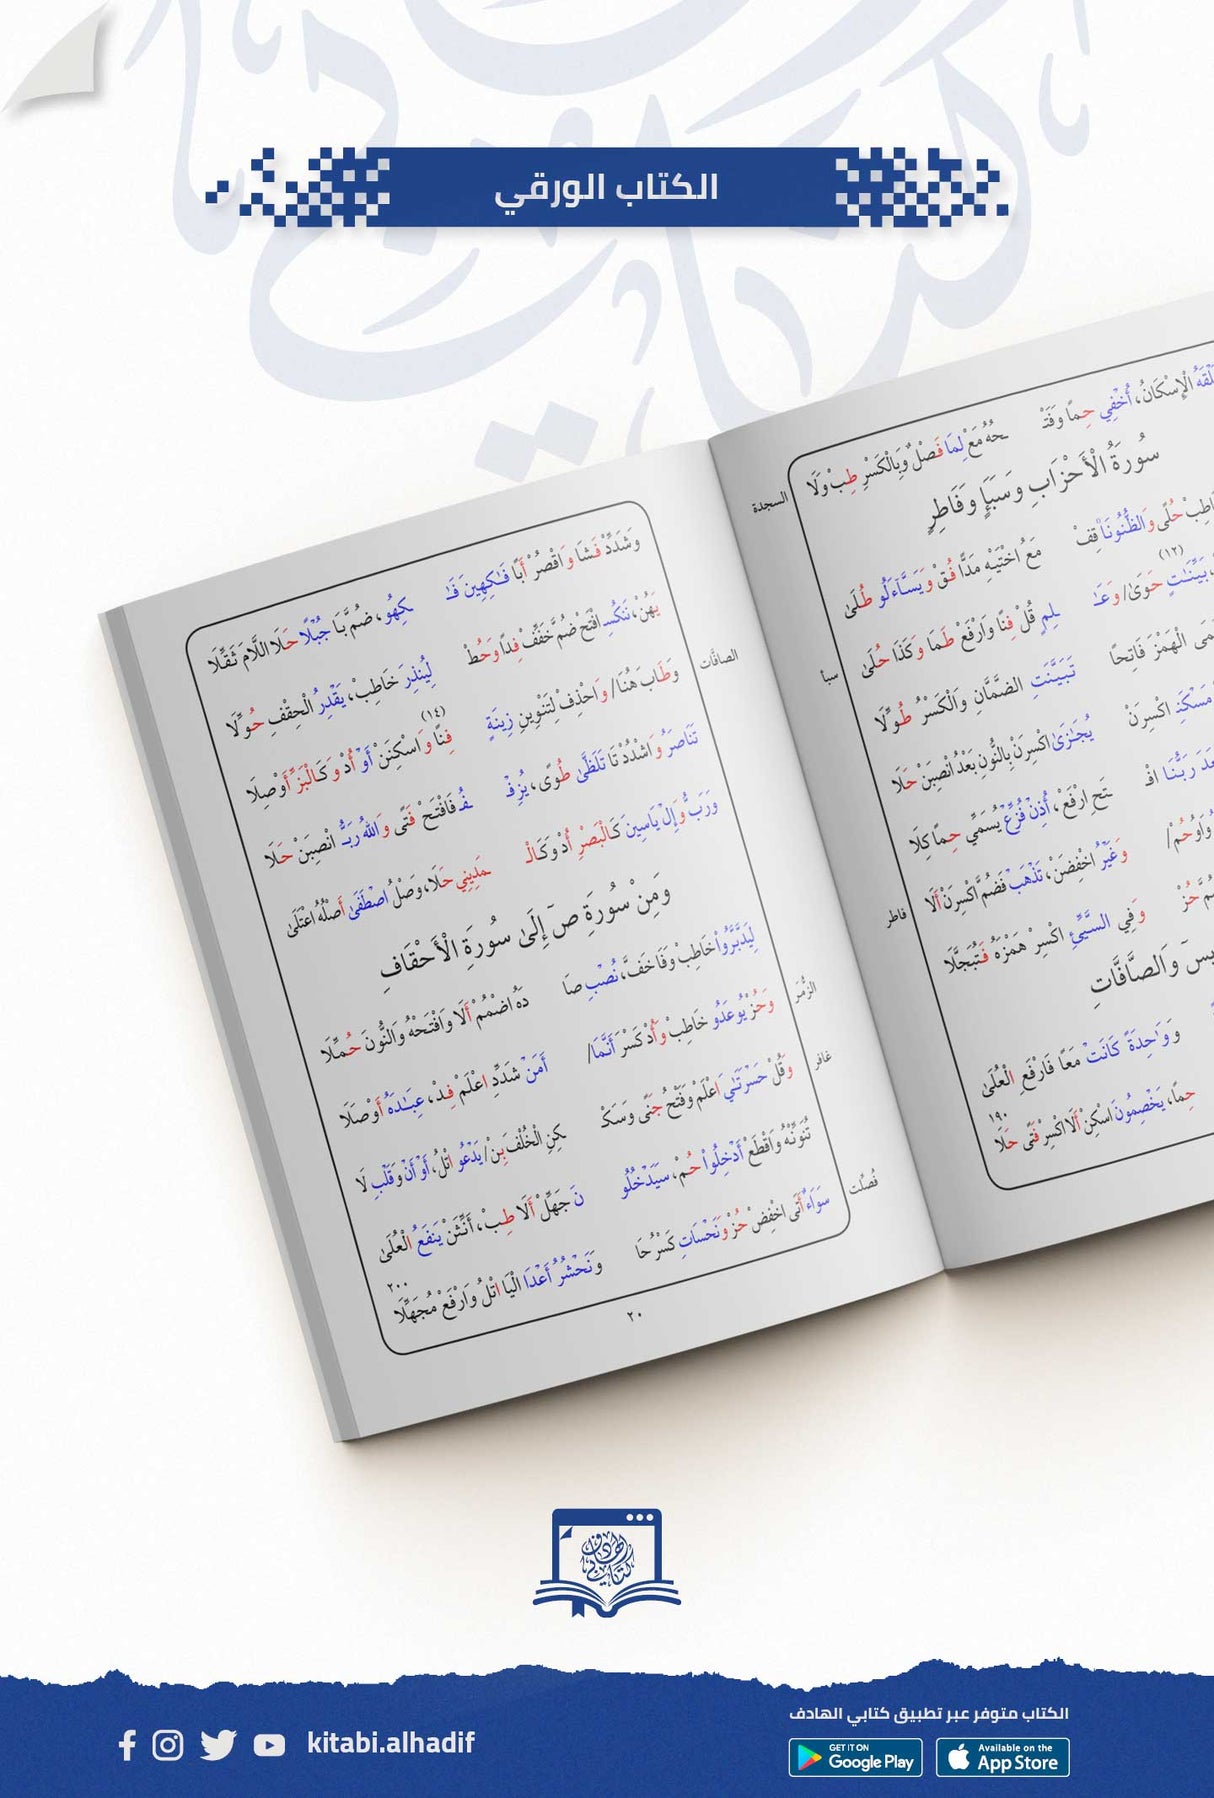 الكتاب الورقي
ـلْقَهُ الْإِسْكَانُ، أُخْفِي حِمًا وَفَتْـ ـحُهُ مَعْ لِمَا فَصْلٌ وَبِالْكَسْرِ طِبْ وَلَا
السجدة
سُورَةُ الْأَحْزَابِ وَسَبَإٍ وَفَاطِرٍ
ـاطِبْ حُلًى وَالظُّنُونَا قِفْ مَعُ اخْتَيْهِ مَدًّا فُقْ وَيَسَّاءَلُو طُلَى
(١٢)
بَيِّنَاتٍ حَوَى/ وَعَـ ـلِمٍ قُلْ فِنًا وَارْفَعْ طَمَا وَكَذَا حُلَى
سبأ
ـمَى الْهَمْزَ فَاتِحًا تَبَيَّنَتِ الضَّمَّانِ وَالْكَسْرُ طُوِّلَا
مَسْكَنِ اكْسِرَنْ يُجَازَى اكْسِرَنْ بِالنُّونِ بَعْدُ انْصِبَنْ حَلَا
ـعَدَ رَبُّنَا افْـ ـتَحِ ارْفَعْ، أُذِنْ فُزِّعْ يُسَمِّي حِمًا كِلَا
وَاوُ حُمْ/ وَغَيْرُ اخْفِضَنْ، تَذْهَبْ فَضُمَّ اكْسِرَنْ أَلَا
فاطر
ـمُّ حُزْ وَفِي السَّيِّئِ اكْسِرْ هَمْزَهُ فَتُبَجَّلَا
يسٓ وَالصَّافَّاتِ
وَوَاحِدَةً كَانَتْ مَعًا فَارْفَعِ الْعُلَى
١٩٠
حِمًا، يَخْصِمُونَ اسْكِنْ أَلَا اكْسِرْ فَتًى حَلَا
وَشَدِّدْ فَشَا وَاقْصُرْ أَبًا فَاكِهِينَ فَا كِهُو، ضُمَّ بَا جُبُلًا حَلَا اللَّامَ ثَقِّلَا
يَهُنْ، نَنْكُسِ افْتَحْ ضُمَّ خَفِّفْ فِدًا وَحُطْ لِيُنْذِرَ خَاطِبْ، يَقْدِرُ الْحِقْفِ حُوِّلَا
الصافات
(١٤)
وَطَابَ هُنَا/ وَاحْذِفْ لِتَنْوِينِ زِينَةٍ فِنًا وَاسْكِنَنْ أَوْ أُدْ وَكَالْبَزِّ أَوْصِلَا
تَنَاصَرُو وَاشْدُدْ تَا تَلَظَّى طُوًى، يُزِفْـ ـفُ فَافْتَحْ فَتًى وَاللهُ رَبُّـ انْصِبَنْ حَلَا
وَرَبُّ وَإِلْ يَاسِينَ كَالْبَصْرِ أُدْ وَكَالْـ ـمَدِينِي حَلَا، وَصْلُ اصْطَفَى أَصْلُهُ اعْتَلَى
وَمِنْ سُورَةِ صٓ إِلَى سُورَةِ الْأَحْقَافِ
لِيَدَّبَّرُوا خَاطِبْ وَفَا خَفَّ، نُصْبِ صَا دَهُ اضْمُمْ أَلَا وَافْتَحْهُ وَالنُّونَ حُمِّلَا
الزُّمَر
وَحُزْ يُوعَدُو خَاطِبْ وَأُدْ كَسْرَ أَنَّمَا/ أَمَنْ شَدِّدِ اعْلَمْ فِدْ، عِبَادَهُ أَوْصَلَا
غافر
وَقُلْ حَسْرَتَايَ اعْلَمْ وَفَتْحٌ جَنًى وَسَكْـ ـكِنِ الْخُلْفَ بِنْ/ يَدْعُو اتْلُ، أَوْ أَنْ وَقَلْبِ لَا
تُنَوِّنْهُ وَاقْطَعْ أَدْخِلُوا حُمْ، سَيَدْخُلُو نَ جَهِّلْ أَلَا طِبْ، أَنِّثَنْ يَنْفَعُ الْعُلَى
فُصِّلت
٢٠٠
سَوَاءٌ أَتَى اخْفِضْ حُزْ وَنَحْسَاتِ كَسْرُ حَا وَنَحْشُرُ أَعْدَا الْيَا اتْلُ وَارْفَعْ مُجَهِّلَا
٢٠
الكتاب متوفر عبر تطبيق كتابي الهادف
kitabi.alhadif
GET IT ON Google Play
Available on the App Store